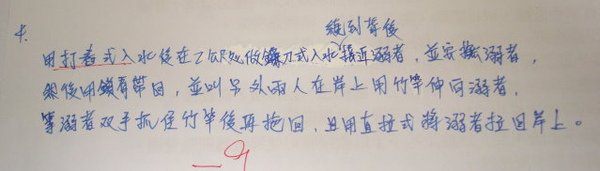 4.
繞到背後
用打者式入水後在2公尺處做鐮刀式入水接近溺者，並安撫溺者，
然後用鎖肩帶回，並叫另外兩人在岸上用竹竿伸向溺者，
等溺者双手抓住竹竿後再拖回，且用直拉式將溺者拉回岸上。
-9